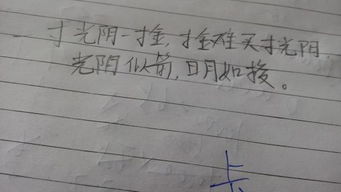 一寸光阴一寸金,寸金难买寸光阴
光阴似箭,日月如梭。